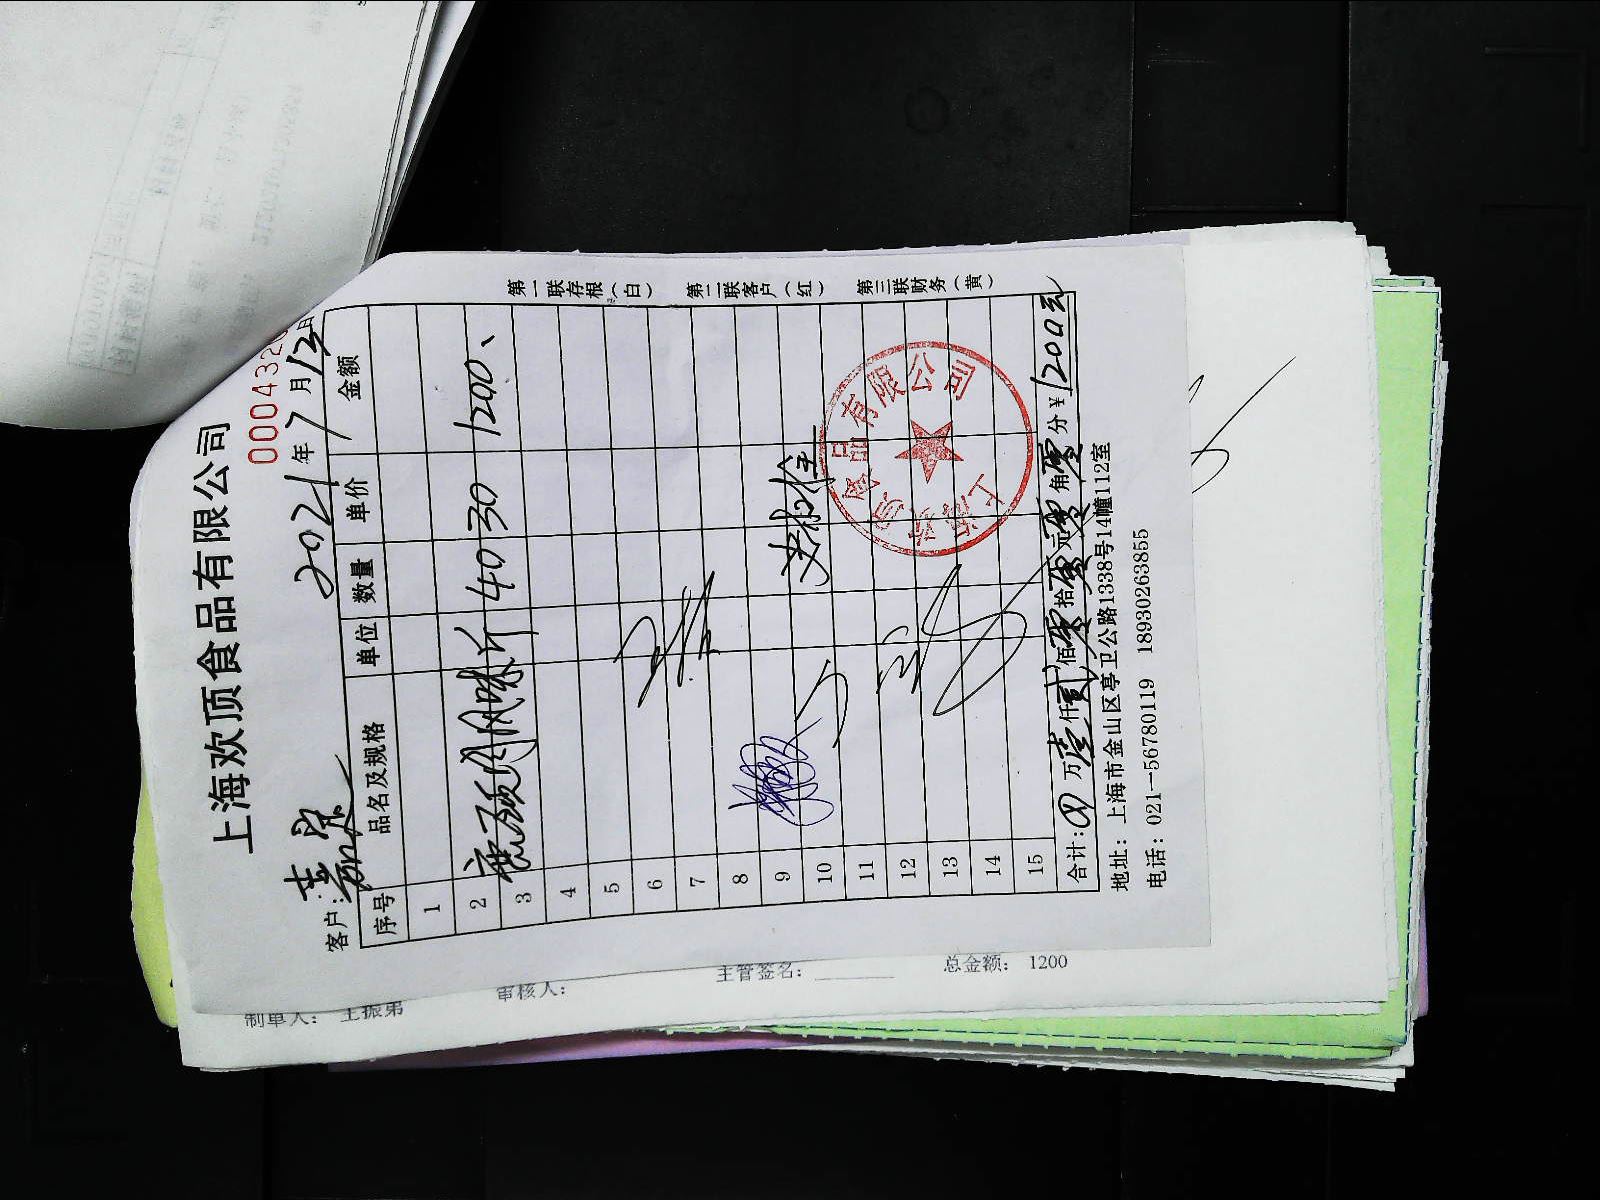 上海欢顶食品有限公司
0000432
2021年7月13日
客户:
序号 品名及规格 单位 数量 单价 金额
1
2 斤 40 30 1200、
3
4
5
6
7
8
9
10
11
12
13
14
15
合计: 万壹仟贰佰零拾零元零角零分 ¥1200元
地址: 上海市金山区亭卫公路1338号14幢112室
电话: 021—56780119 18930263855
第一联存根(白)
第二联客户(红)
第三联财务(黄)
上海欢顶食品有限公司
制单人: 王振弟
审核人:
主管签名:
总金额: 1200